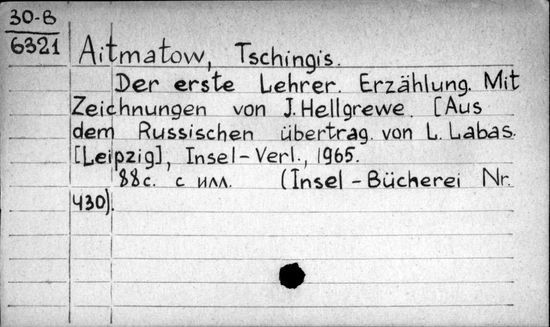 30-B
6321
Aitmatow, Tschingis.
Der erste Lehrer. Erzählung. Mit
Zeichnungen von J. Hellgrewe. [Aus
dem Russischen übertrag. von L. Labas.
[Leipzig], Insel-Verl., 1965.
88с. с илл. (Insel-Bücherei Nr.
430).